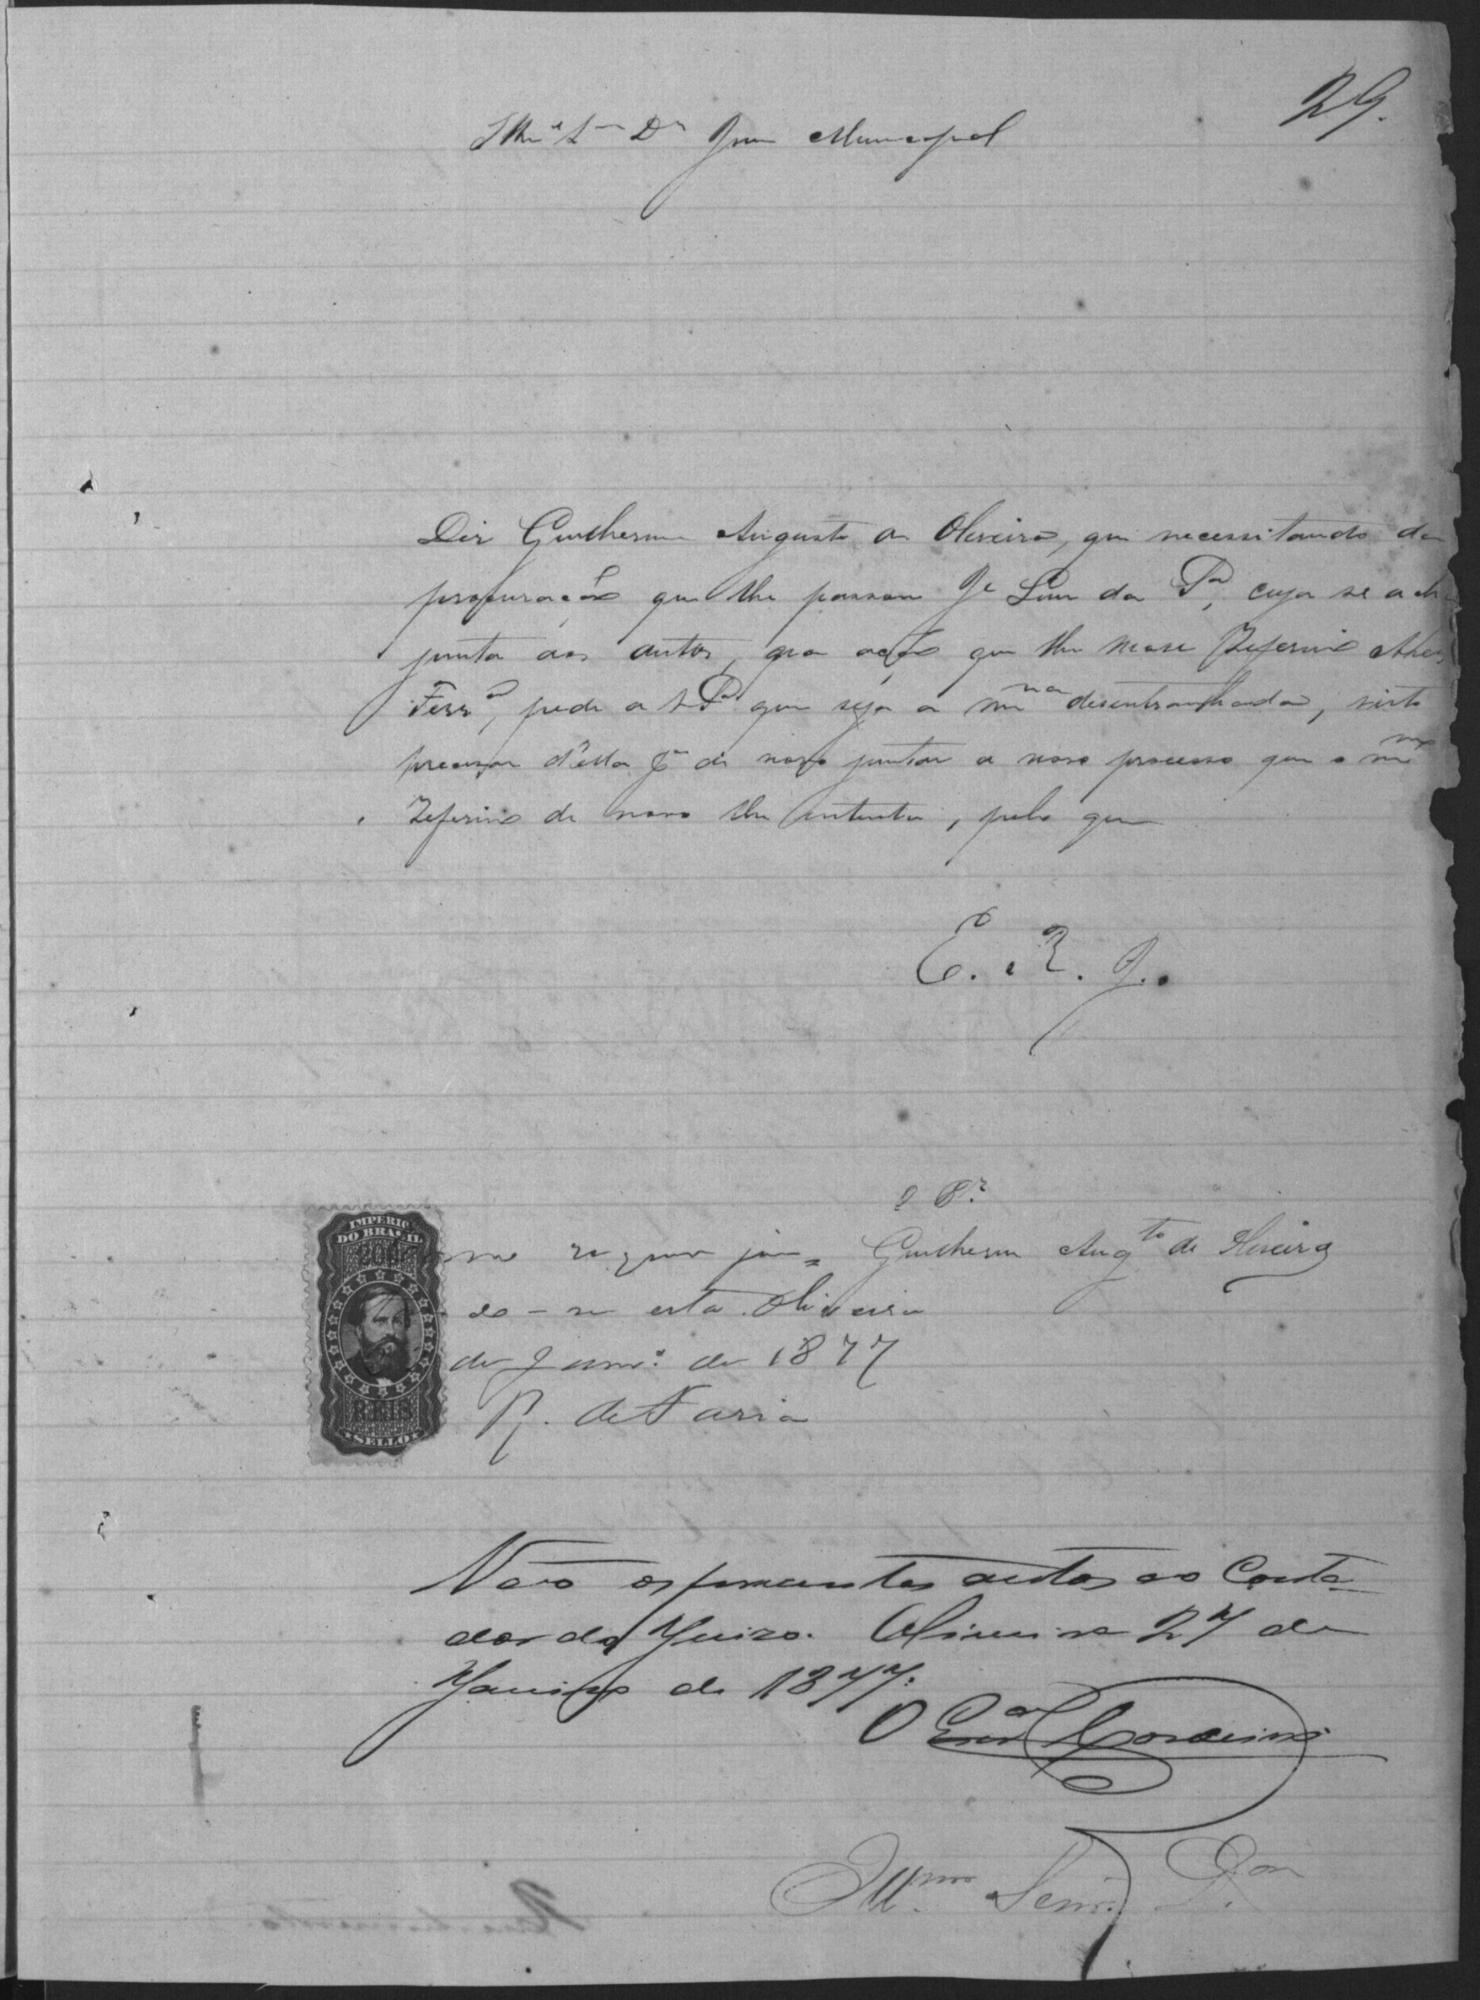 29.
Illmo Sr Dr Juiz Municipal
Diz Guilherme Augusto de Oliveira, que necessitando da
procuração que lhe passou Je Luiz da Pa, cuja se acha
junta aos autos, pra ação que lhe move Zeferino Alves
Ferra, pede a V Sa que seja a mma desentranhada, visto
precisar d'ella pa de novo juntar a novo processo que o mmo
Zeferino de novo lhe intenta, pelo que
E. R. J.
IMPERIO
DO BRASIL
REIS
SELLO
o Pr
Guilherme Augto de Oliveira
requer
do-se esta. Oliveira
de Janro de 1877
R. de Faria
Vão os presentes autos ao Conta-
dor do Juizo. Oliveira 27 de
Janeiro de 1877.
O Escam
Illmo Senr Dor